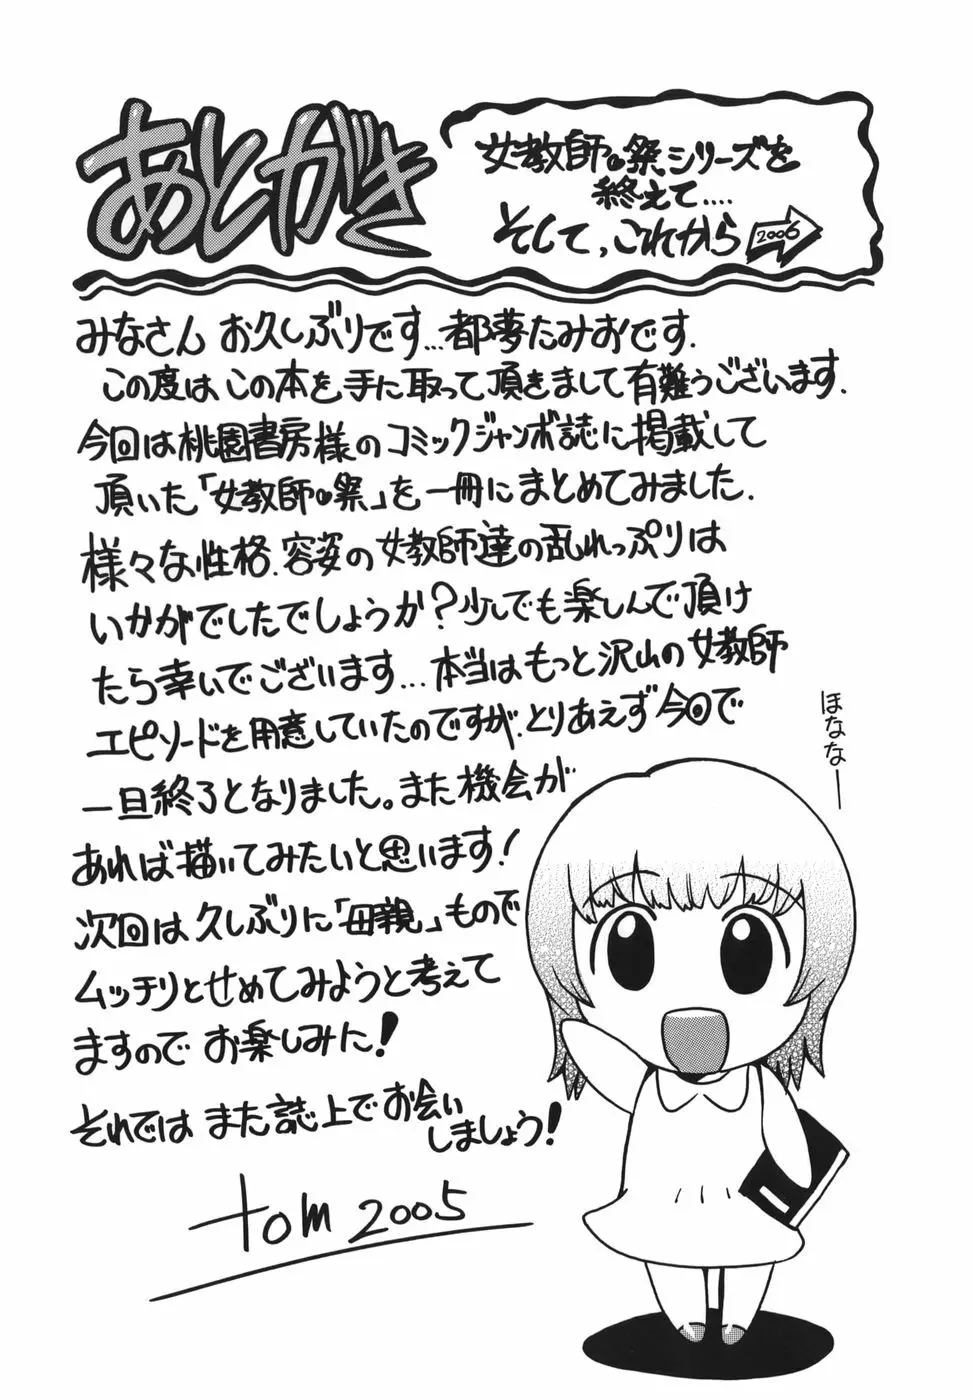 あとがき
女教師の祭シリーズを
終えて....
そして、これから 2006
みなさん お久しぶりです...都夢たみおです.
この度は、この本を、手に取って頂きまして有難うございます.
今回は桃園書房様のコミックジャンボ誌に掲載して
頂いた「女教師の祭」を一冊にまとめてみました.
様々な性格.容姿の女教師達の乱れっぷりは
いかがでしたでしょうか?少しでも楽しんで頂け
たら幸いでございます...本当はもっと沢山の女教師
エピソードを用意していたのですが、とりあえず今回で
一旦終了となりました。また機会が
あれば描いてみたいと思います!
次回は久しぶりに「母親」もので
ムッチリとせめてみようと考えて
ますので お楽しみに!
それでは また誌上でお会い
しましょう!
tom 2005
ほななー